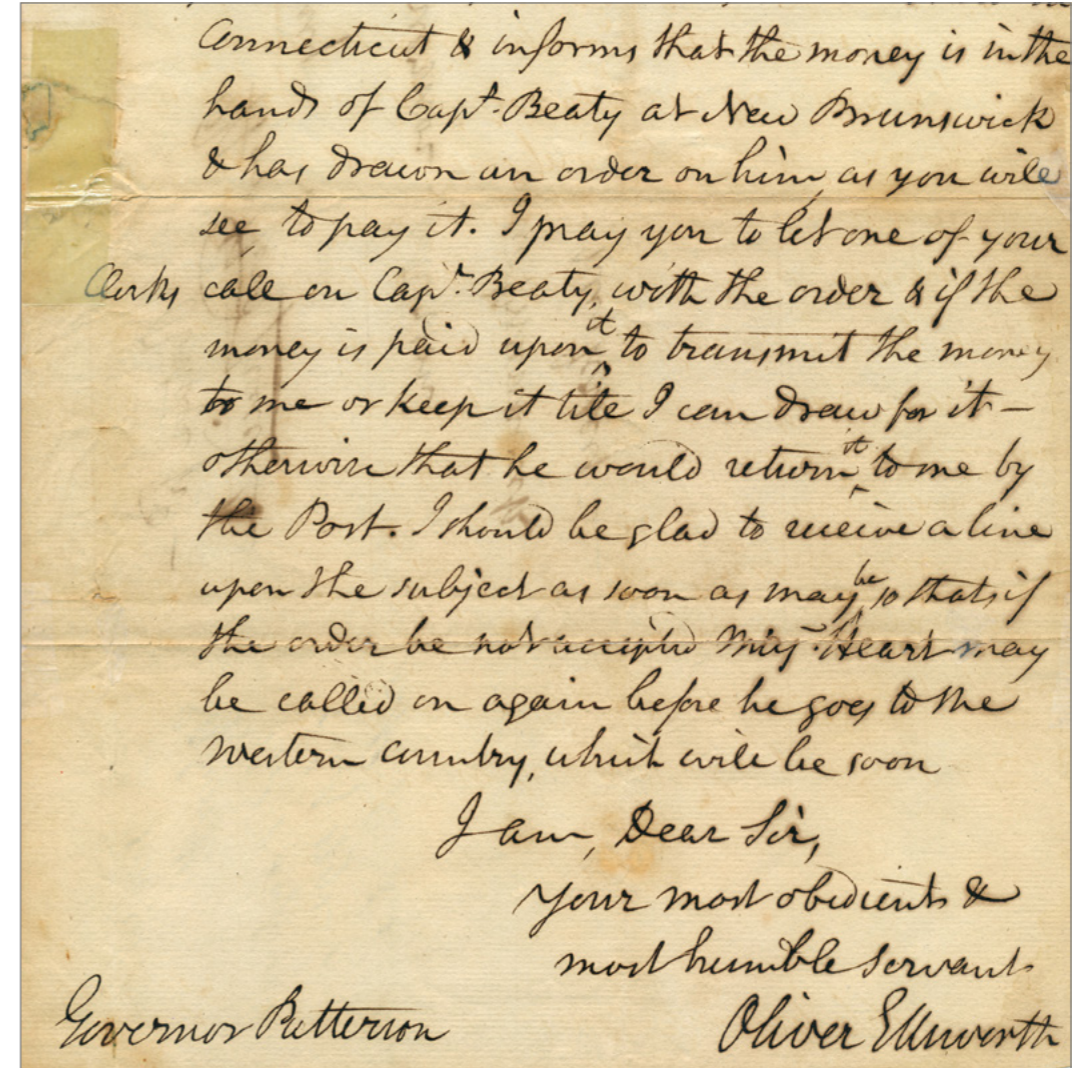 Connecticut & informs that the money is in the
hands of Capt. Beaty at New Brunswick
& has drawn an order on him, as you will
see, to pay it. I pray you to let one of your
Clerks call on Capt. Beaty, with the order & if the
money is paid upon it to transmit the money
to me or keep it till I can draw for it —
otherwise that he would return it to me by
the Post. I should be glad to receive a line
upon the subject as soon as may be, so that if
the order be not accepted Maj. Heart may
be called on again before he goes to the
western country, which will be soon
I am, Dear Sir,
Your most obedient &
most humble Servant
Governor Patterson
Oliver Ellsworth